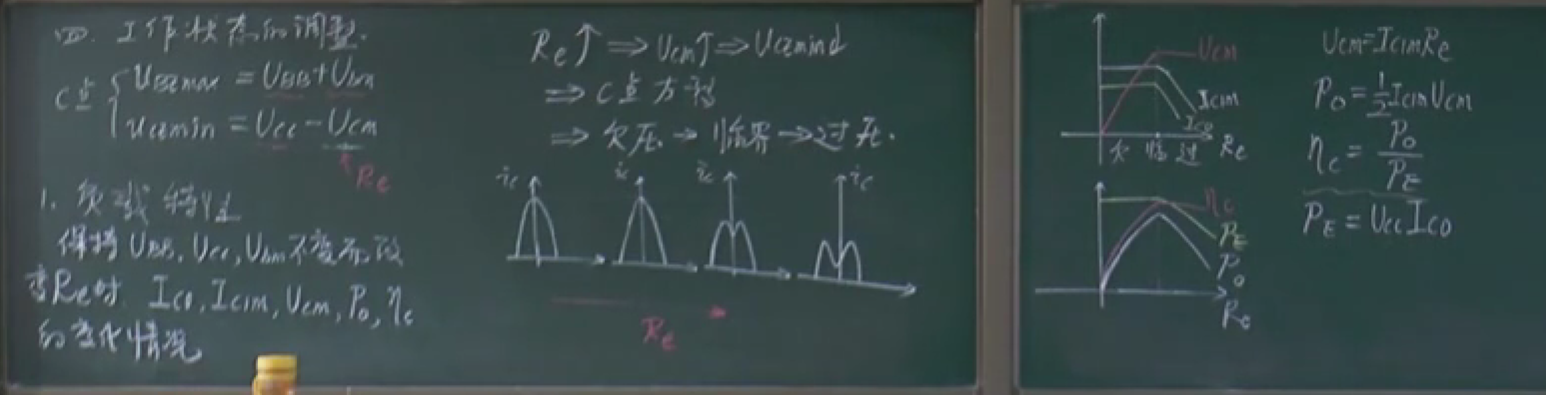 四. 工作状态的调整.
C点 { UBEmax = UBB + Ubm
ucemin = Ucc - Ucm
Re
1. 负载特性
保持 UBB, Ucc, Ubm 不变而改
变Re时 Ico, Ic1m, Ucm, Po, ηc
的变化情况
Re↑ ⇒ Ucm↑ ⇒ Ucemin↓
⇒ C点方程
⇒ 欠压 → 临界 → 过压.
ic ic ic ic
Re
Ucm
Ic1m
Ico
欠 临 过 Re
ηc
PE
Po
Re
Ucm = Ic1m Re
Po = 1/2 Ic1m Ucm
ηc = Po/PE
PE = Ucc Ico